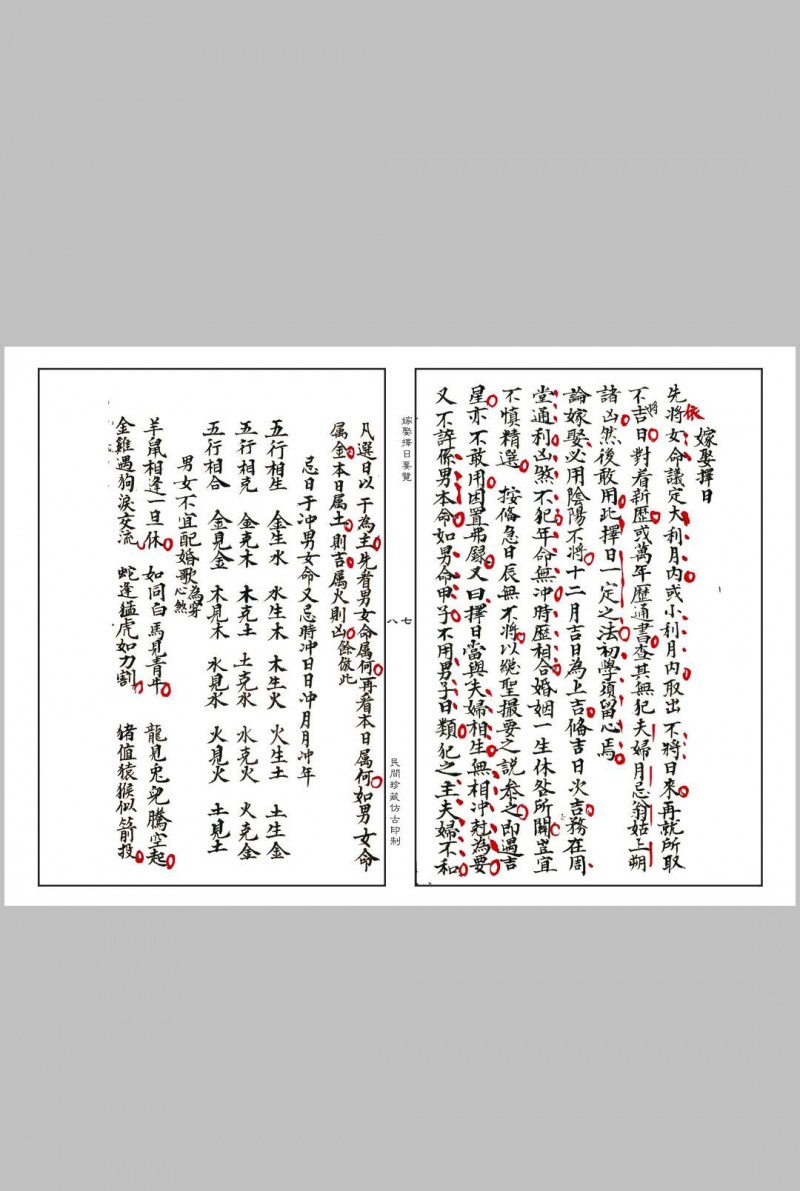 嫁娶擇日
依
先將女命議定大利月內或小利月內取出不將日來再就所取
不將吉日對看新歷或萬年歷通書查其無犯夫婦月忌翁姑上朔
諸凶然後敢用此擇日一定之法初學須留心焉
論嫁娶必用陰陽不將十二月吉日為上吉俻吉日次吉務在周
堂通利凶煞不犯年命無冲時歷相合婚姻一生休咎所關豈宜
不慎精選 按俻急日辰無不將以總聖撮要之説叅之即遇吉
星亦不敢用因置弗録又曰擇日當與夫婦相生無相冲尅為要
又不許係男本命如男命甲子不用男子日類犯之主夫婦不和
嫁娶擇日要覽
七
八
民間珍藏仿古印制
凡選日以干為主先看男女命属何再看本日属何如男女命
属金本日属土則吉属火則凶餘倣此
忌日于冲男女命又忌時冲日日冲月月冲年
五行相生 金生水 水生木 木生火 火生土 土生金
五行相克 金克木 木克土 土克水 水克火 火克金
五行相合 金見金 木見木 水見水 火見火 土見土
男女不宜配婚歌為穿心煞
羊鼠相逢一旦休 如同白馬見青牛 龍見兎兒騰空起
金雞遇狗淚交流 蛇逢猛虎如刀割 猪值猿猴似箭投